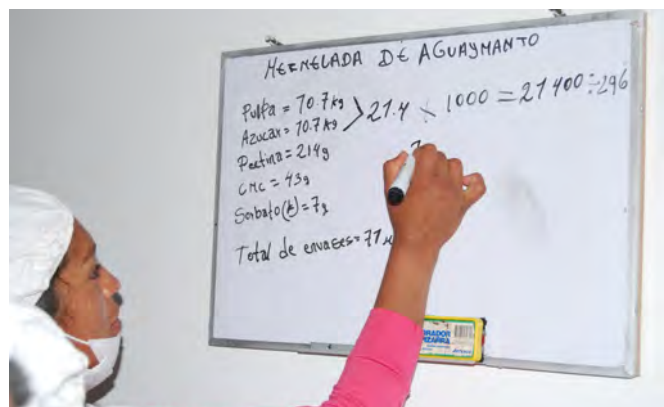 MERMELADA DE AGUAYMANTO
Pulpa = 10.7 kg
Azucar = 10.7 kg > 21.4 × 1000 = 21400 ÷ 296
Pectina = 214g
CMC = 43g
Sorbato (k) = 7g
Total de envases = 71
BORRADOR
PIZARRA